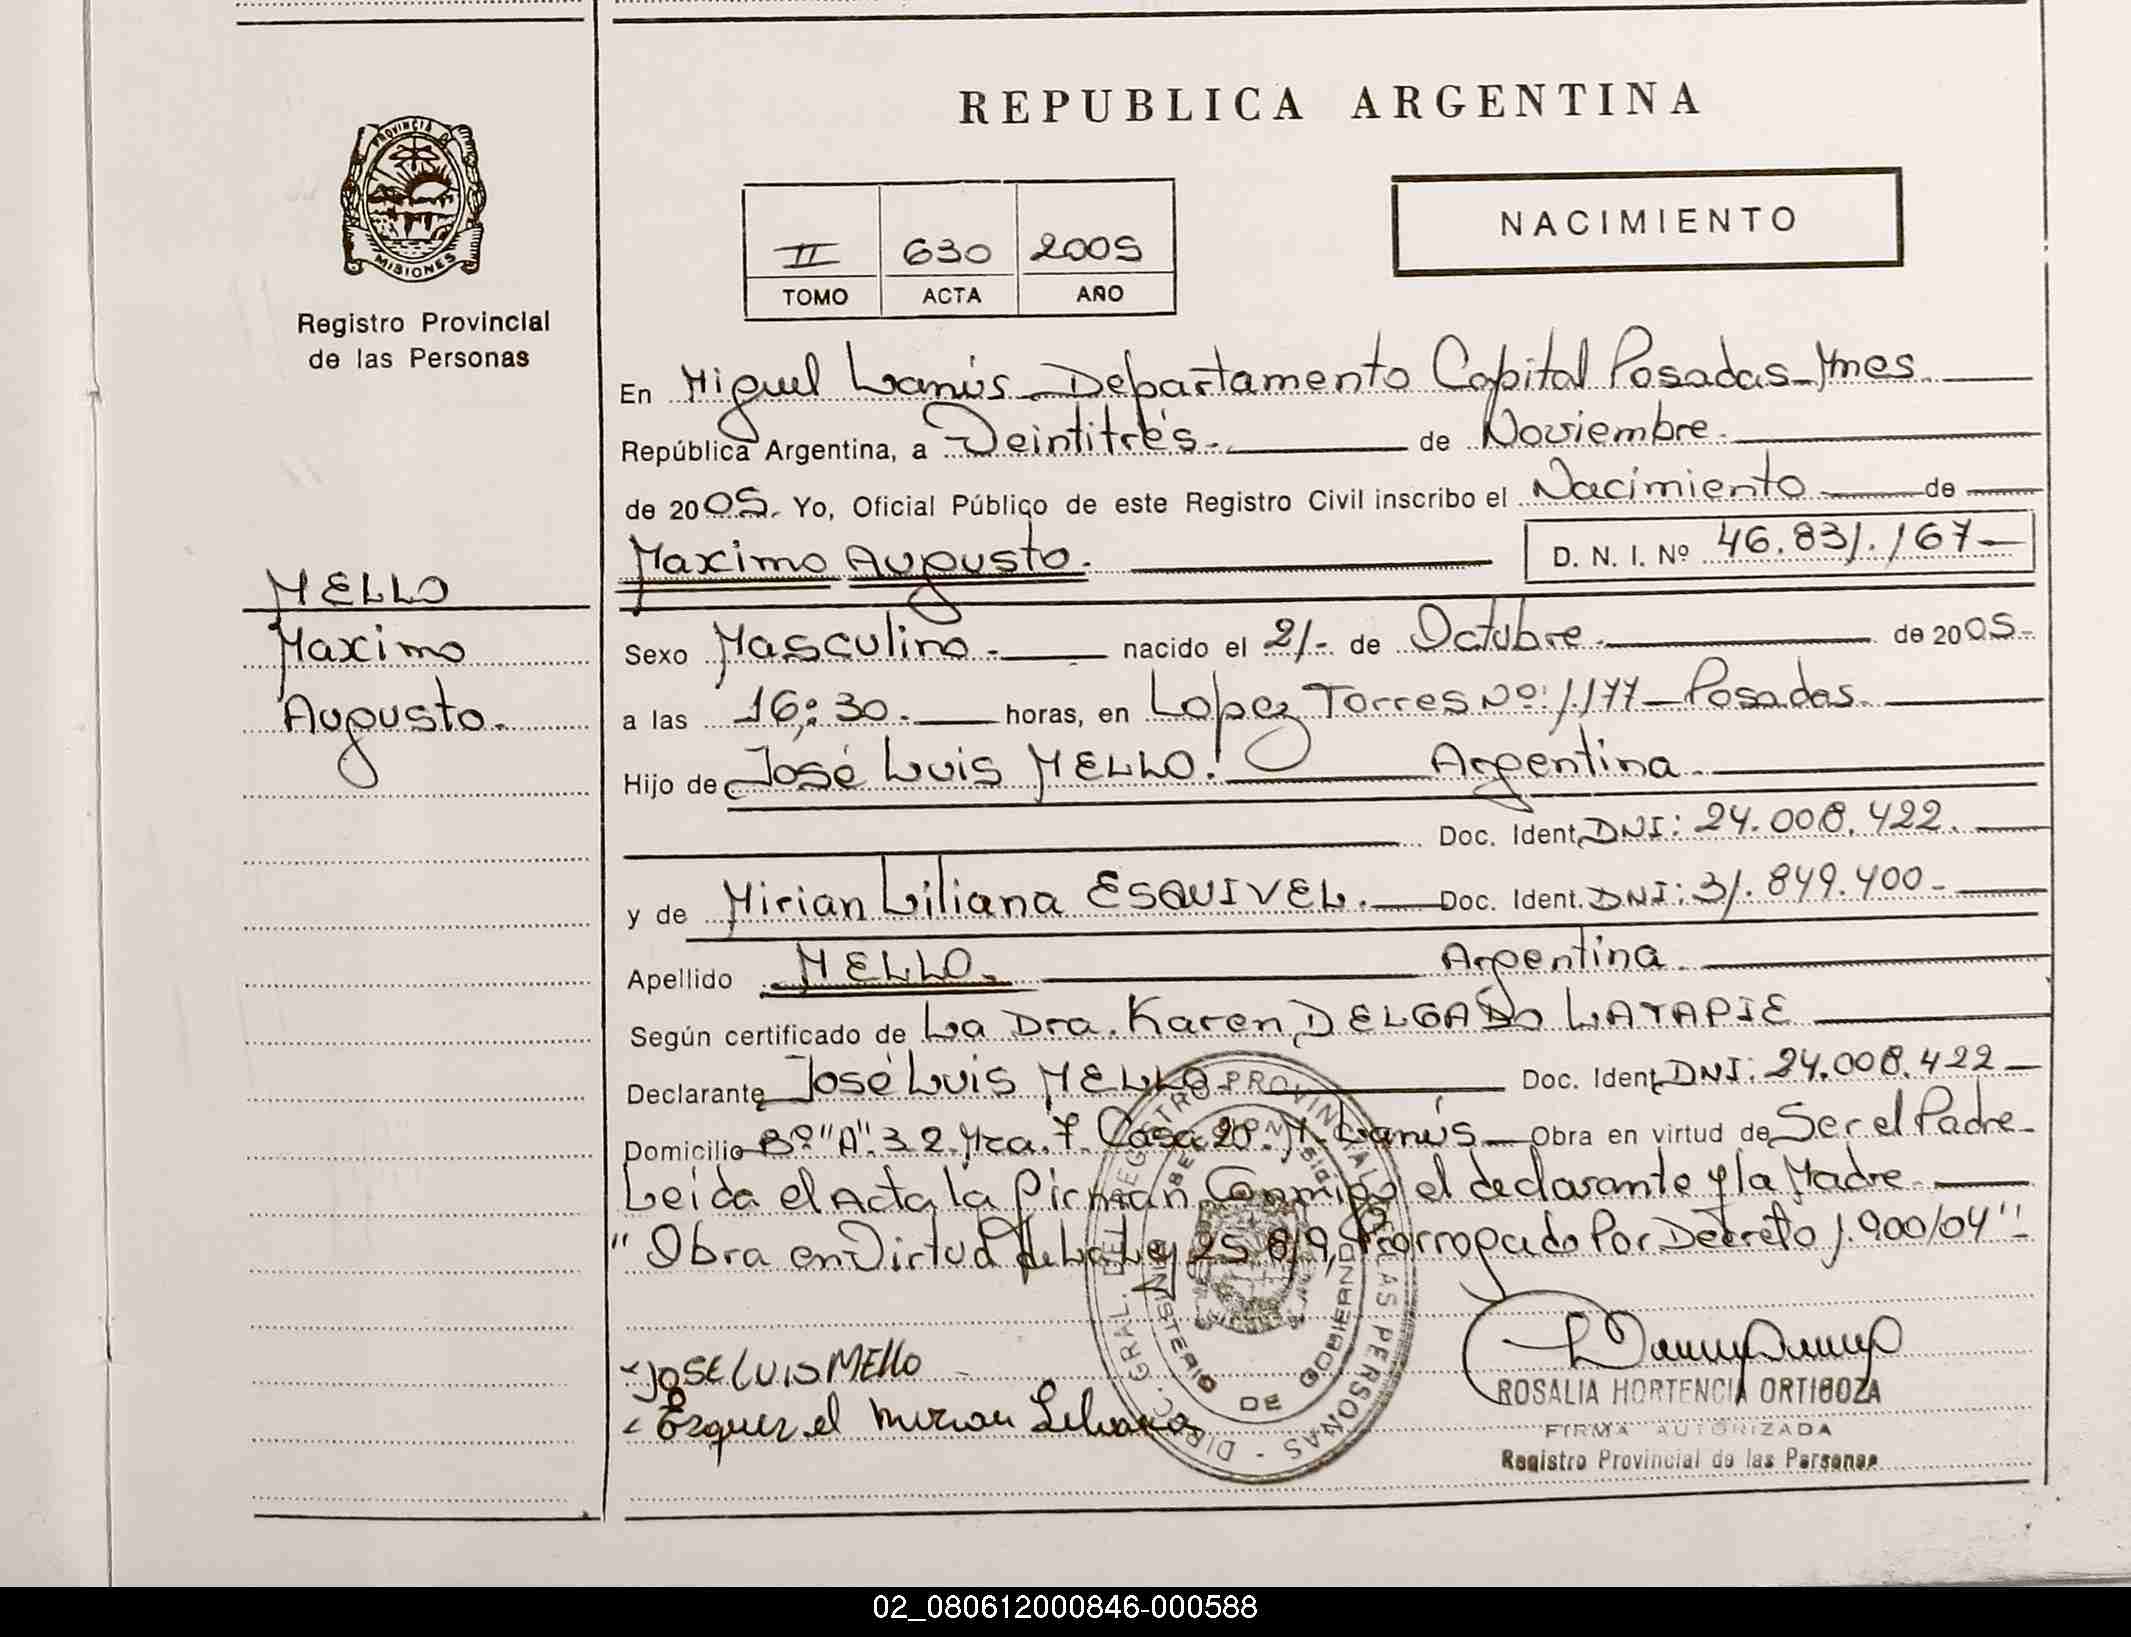 REPUBLICA ARGENTINA
PROVINCIA DE
MISIONES
Registro Provincial
de las Personas
NACIMIENTO
II 630 2005
TOMO ACTA AÑO
En Miguel Lanús - Departamento Capital Posadas - Mnes.
República Argentina, a Veintitrés. de Noviembre.
de 2005. Yo, Oficial Público de este Registro Civil inscribo el Nacimiento de
Maximo Augusto. D. N. I. Nº 46.831.167-
MELLO
Maximo
Augusto.
Sexo Masculino.- nacido el 21.- de Octubre. de 2005.-
a las 16:30. horas, en Lopez Torres Nº: 1.177 - Posadas.
Hijo de José Luis MELLO. Argentina.
Doc. Ident. DNI: 24.008.422.
y de Mirian Liliana ESQUIVEL. Doc. Ident. DNI: 31.849.400-
Apellido MELLO. Argentina.
Según certificado de La Dra. Karen DELGADO LATAPIE
Declarante José Luis MELLO Doc. Ident. DNI: 24.008.422-
Domicilio Bº "A". 3.2. Mza. 7. Casa 20. M. Lanús - Obra en virtud de Ser el Padre.
Leida el Acta la firman Conmigo el declarante y la Madre
"Obra en Virtud de La Ley 25.819, Prorrogado Por Decreto 1.900/04".
JOSE LUIS MEllo
Esquivel Mirian Liliana
DIRECC. GRAL. DEL REGISTRO PROVINCIAL DE LAS PERSONAS
MINISTERIO DE GOBIERNO
ROSALIA HORTENCIA ORTIGOZA
FIRMA AUTORIZADA
Registro Provincial de las Personas
02_080612000846-000588